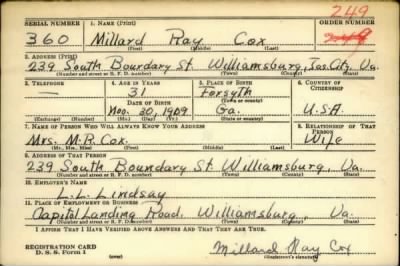 249
SERIAL NUMBER 1. NAME (Print) ORDER NUMBER
360 Millard Ray Cox 249
(First) (Middle) (Last)
2. ADDRESS (Print)
239 South Boundary St. Williamsburg, Jas. City, Va.
(Number and street or R. F. D. number) (Town) (County) (State)
3. TELEPHONE 4. AGE IN YEARS 5. PLACE OF BIRTH 6. COUNTRY OF CITIZENSHIP
31 Forsyth
DATE OF BIRTH (Town or county)
Nov. 30, 1909 Ga. U.S.A.
(Exchange) (Number) (Mo.) (Day) (Yr.) (State or country)
7. NAME OF PERSON WHO WILL ALWAYS KNOW YOUR ADDRESS 8. RELATIONSHIP OF THAT PERSON
Mrs. M.R. Cox Wife
(Mr., Mrs., Miss) (First) (Middle) (Last)
9. ADDRESS OF THAT PERSON
239 South Boundary St. Williamsburg, Va.
(Number and street or R. F. D. number) (Town) (County) (State)
10. EMPLOYER'S NAME
L. L. Lindsay
11. PLACE OF EMPLOYMENT OR BUSINESS
Capitol Landing Road, Williamsburg, Va.
(Number and street or R. F. D. number) (Town) (County) (State)
I AFFIRM THAT I HAVE VERIFIED ABOVE ANSWERS AND THAT THEY ARE TRUE.
REGISTRATION CARD
D. S. S. Form 1 Millard Ray Cox
(Registrant's signature)